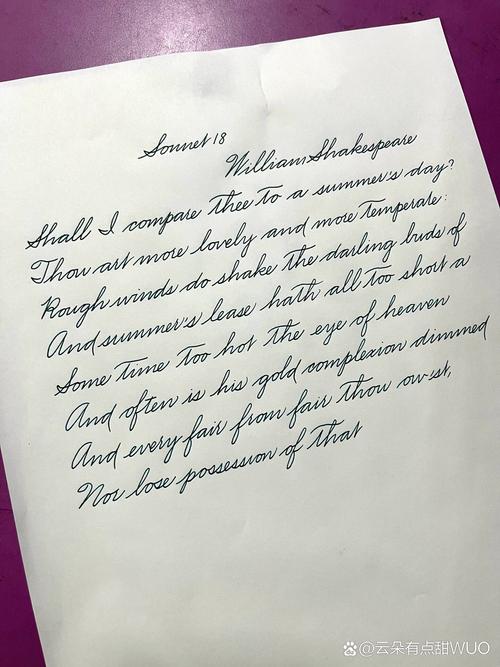 Sonnet 18
William Shakespeare
Shall I compare thee to a summer's day?
Thou art more lovely and more temperate:
Rough winds do shake the darling buds of
And summer's lease hath all too short a
Some time too hot the eye of heaven
And often is his gold complexion dimmed
And every fair from fair thou owest,
Nor lose possession of that
@云朵有点甜WUO